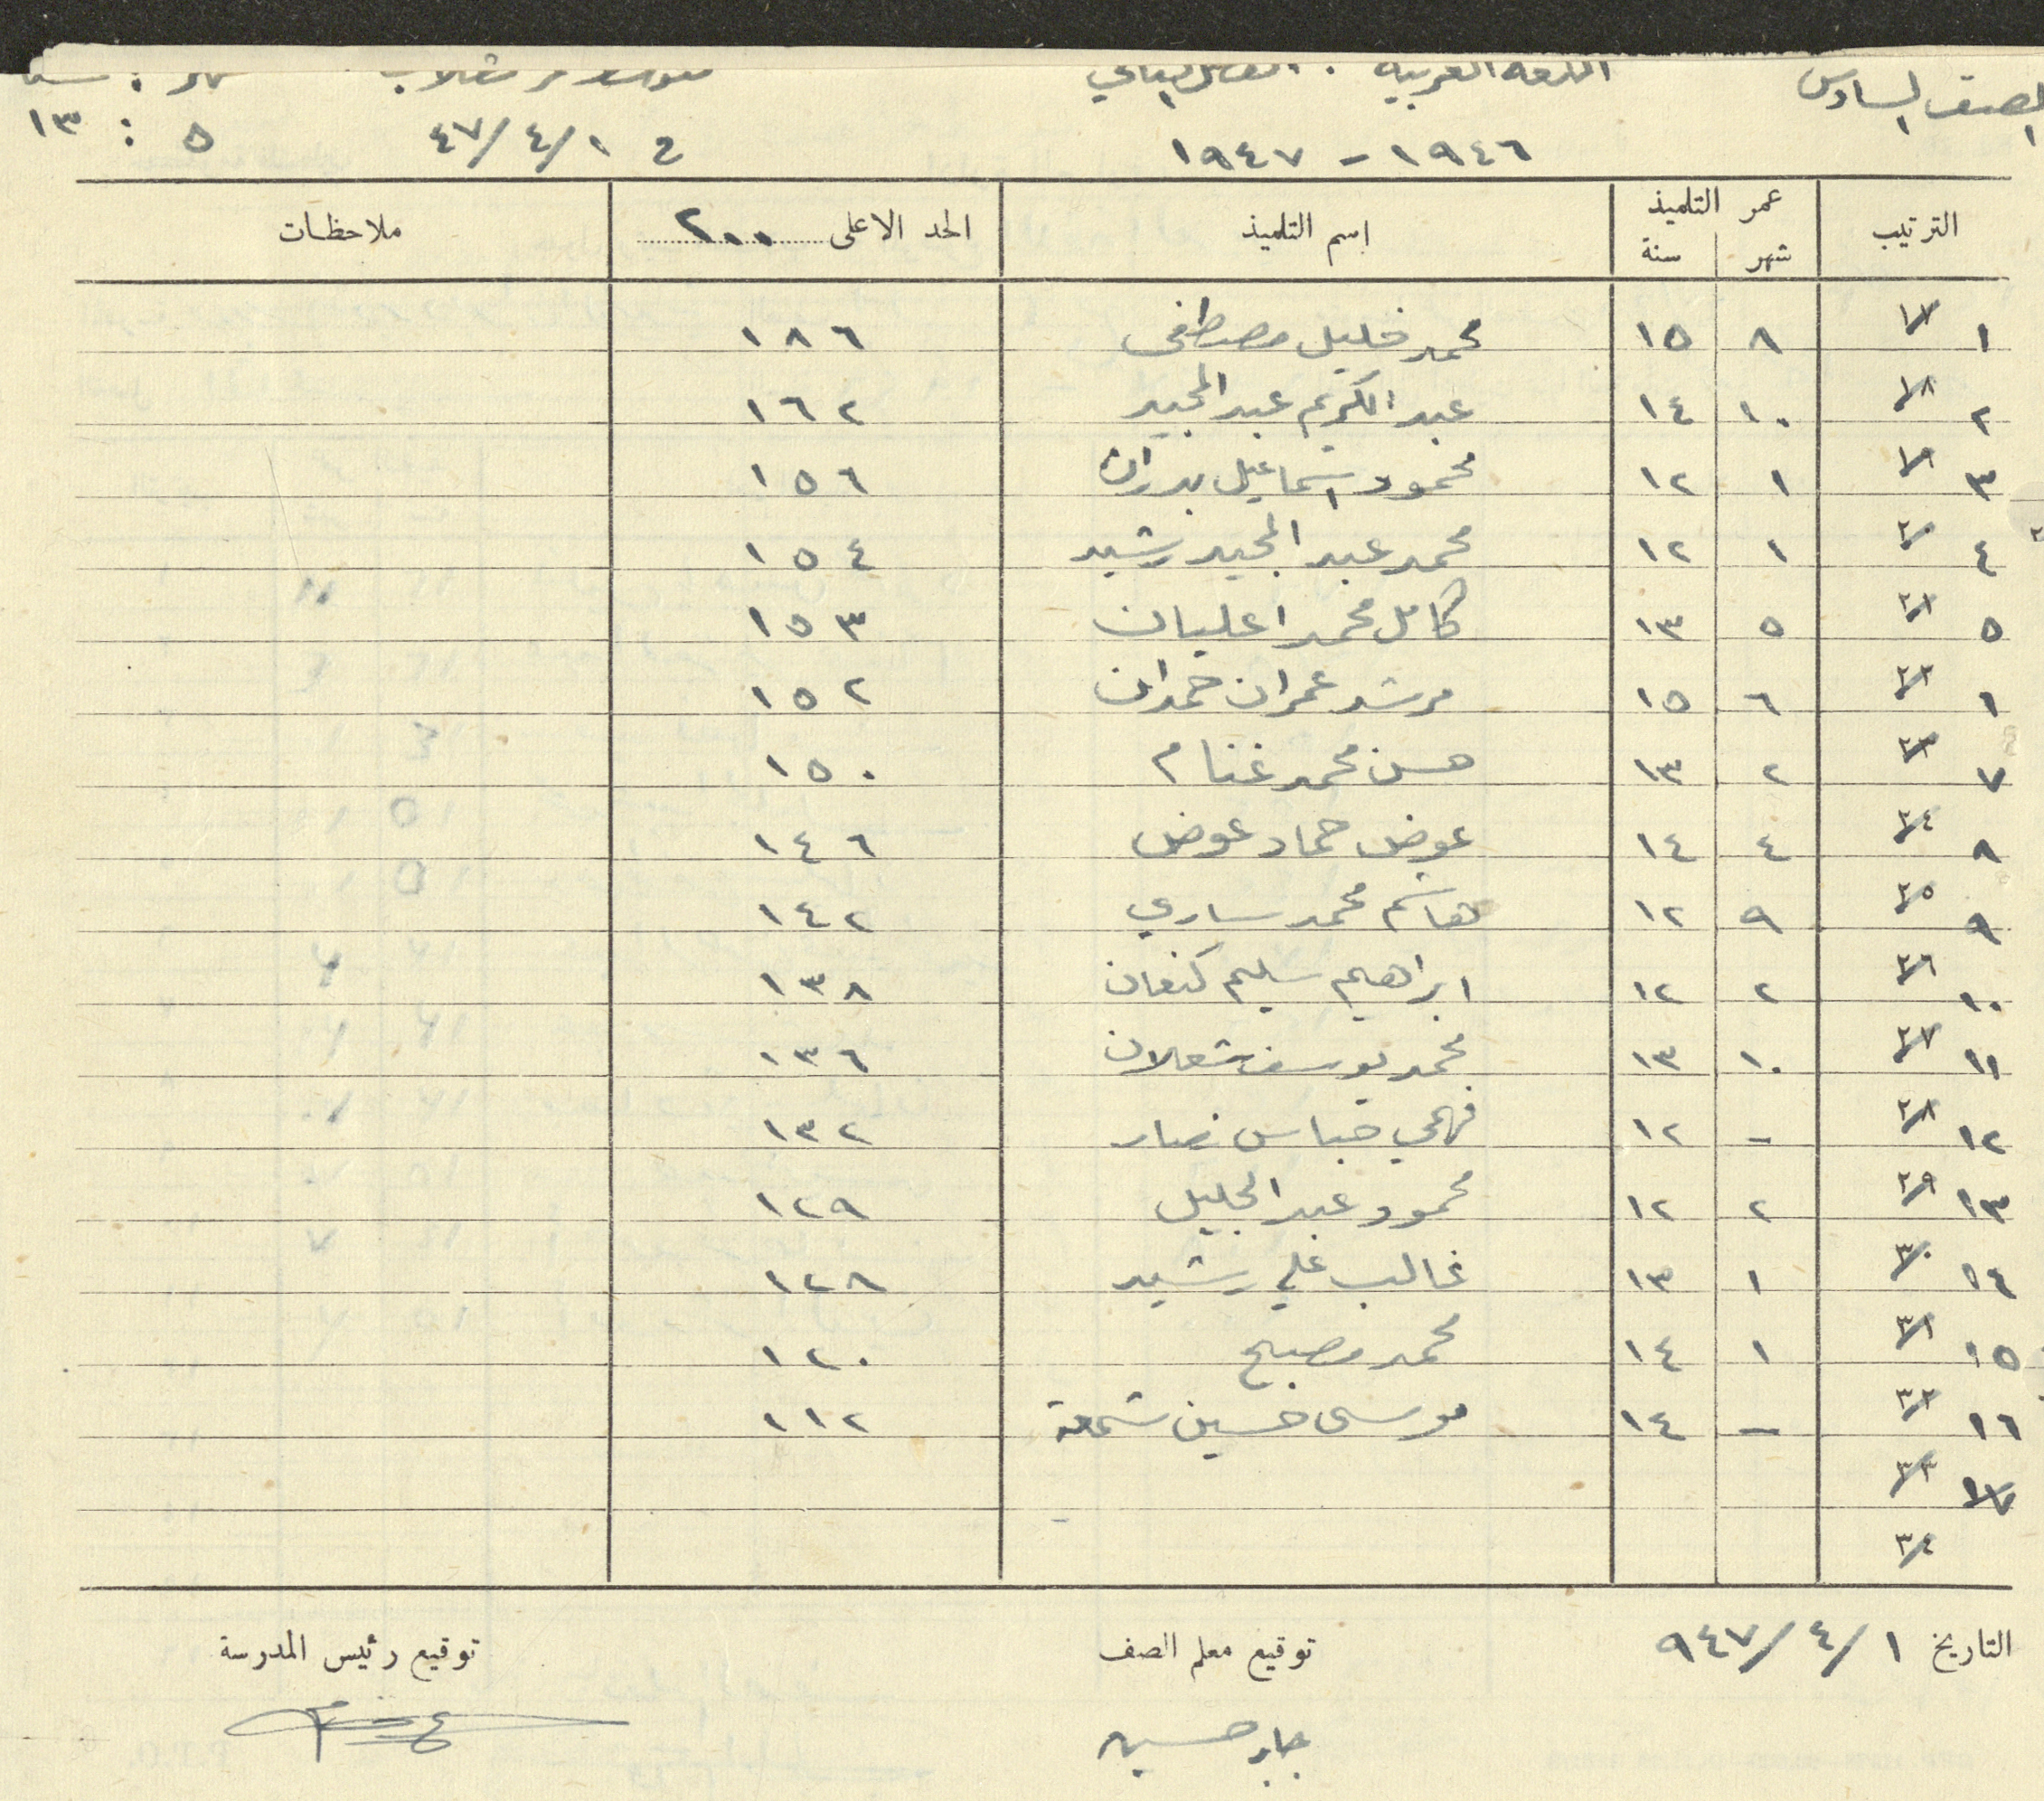 الصف السادس اللغة العربية . الفصل الثاني
١٩٤٦ - ١٩٤٧ في ٤٧/٤/١ ٥ : ١٣
الترتيب عمر التلميذ إسم التلميذ الحد الاعلى ٢٠٠ ملاحظات
شهر سنة
١ ١٧ ٨ ١٥ محمد خليل مصطفى ١٨٦
٢ ١٨ ١٠ ١٤ عبد الكريم عبد المجيد ١٦٢
٣ ١٩ ١ ١٢ محمود اسماعيل بدران ١٥٦
٤ ٢٠ ١ ١٢ محمد عبد المجيد رشيد ١٥٤
٥ ٢١ ٥ ١٣ كامل محمد اعليان ١٥٣
٦ ٢٢ ٦ ١٥ مرشد عمران حمدان ١٥٢
٧ ٢٣ ٢ ١٣ حسن محمد غنام ١٥٠
٨ ٢٤ ٤ ١٤ عوض حماد عوض ١٤٦
٩ ٢٥ ٩ ١٢ هاشم محمد ساري ١٤٢
١٠ ٢٦ ٢ ١٢ ابراهيم سليم كنعان ١٣٨
١١ ٢٧ ١٠ ١٣ محمد يوسف شعلان ١٣٦
١٢ ٢٨ - ١٢ فهمي عباس نصار ١٣٢
١٣ ٢٩ ٢ ١٢ محمود عبد الجليل ١٢٩
١٤ ٣٠ ١ ١٣ غالب علي رشيد ١٢٨
١٥ ٣١ ١ ١٤ محمد مصبح ١٢٠
١٦ ٣٢ - ١٤ موسى حسين شمعة ١١٢
١٧ ٣٣
٣٤
التاريخ ١/٤/٩٤٧ توقيع معلم الصف توقيع رئيس المدرسة
جابر حسين